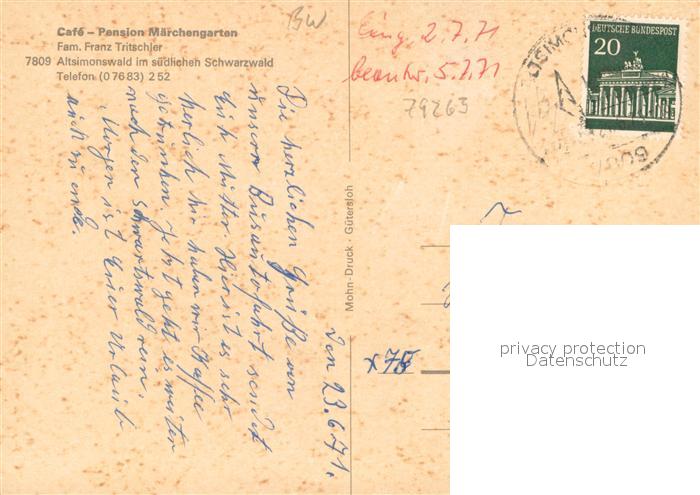 Café – Pension Märchengarten
Fam. Franz Tritschler
7809 Altsimonswald im südlichen Schwarzwald
Telefon (0 76 83) 2 52
BW
Eing. 2.7.71
beantw. 5.7.71
79263
DEUTSCHE BUNDESPOST
20
Den 23.6.71.
Die herzlichen Grüße von
unserer Busautofahrt sendet
Euch Mutter Hier ist es sehr
herlich wir haben wir Kaffee
getrunken jetzt geht es weiter
nach den schwartswald rein.
Morgen ist Euer Urlaub
auch zu ende.
Mohn-Druck · Gütersloh
x 75
privacy protection
Datenschutz